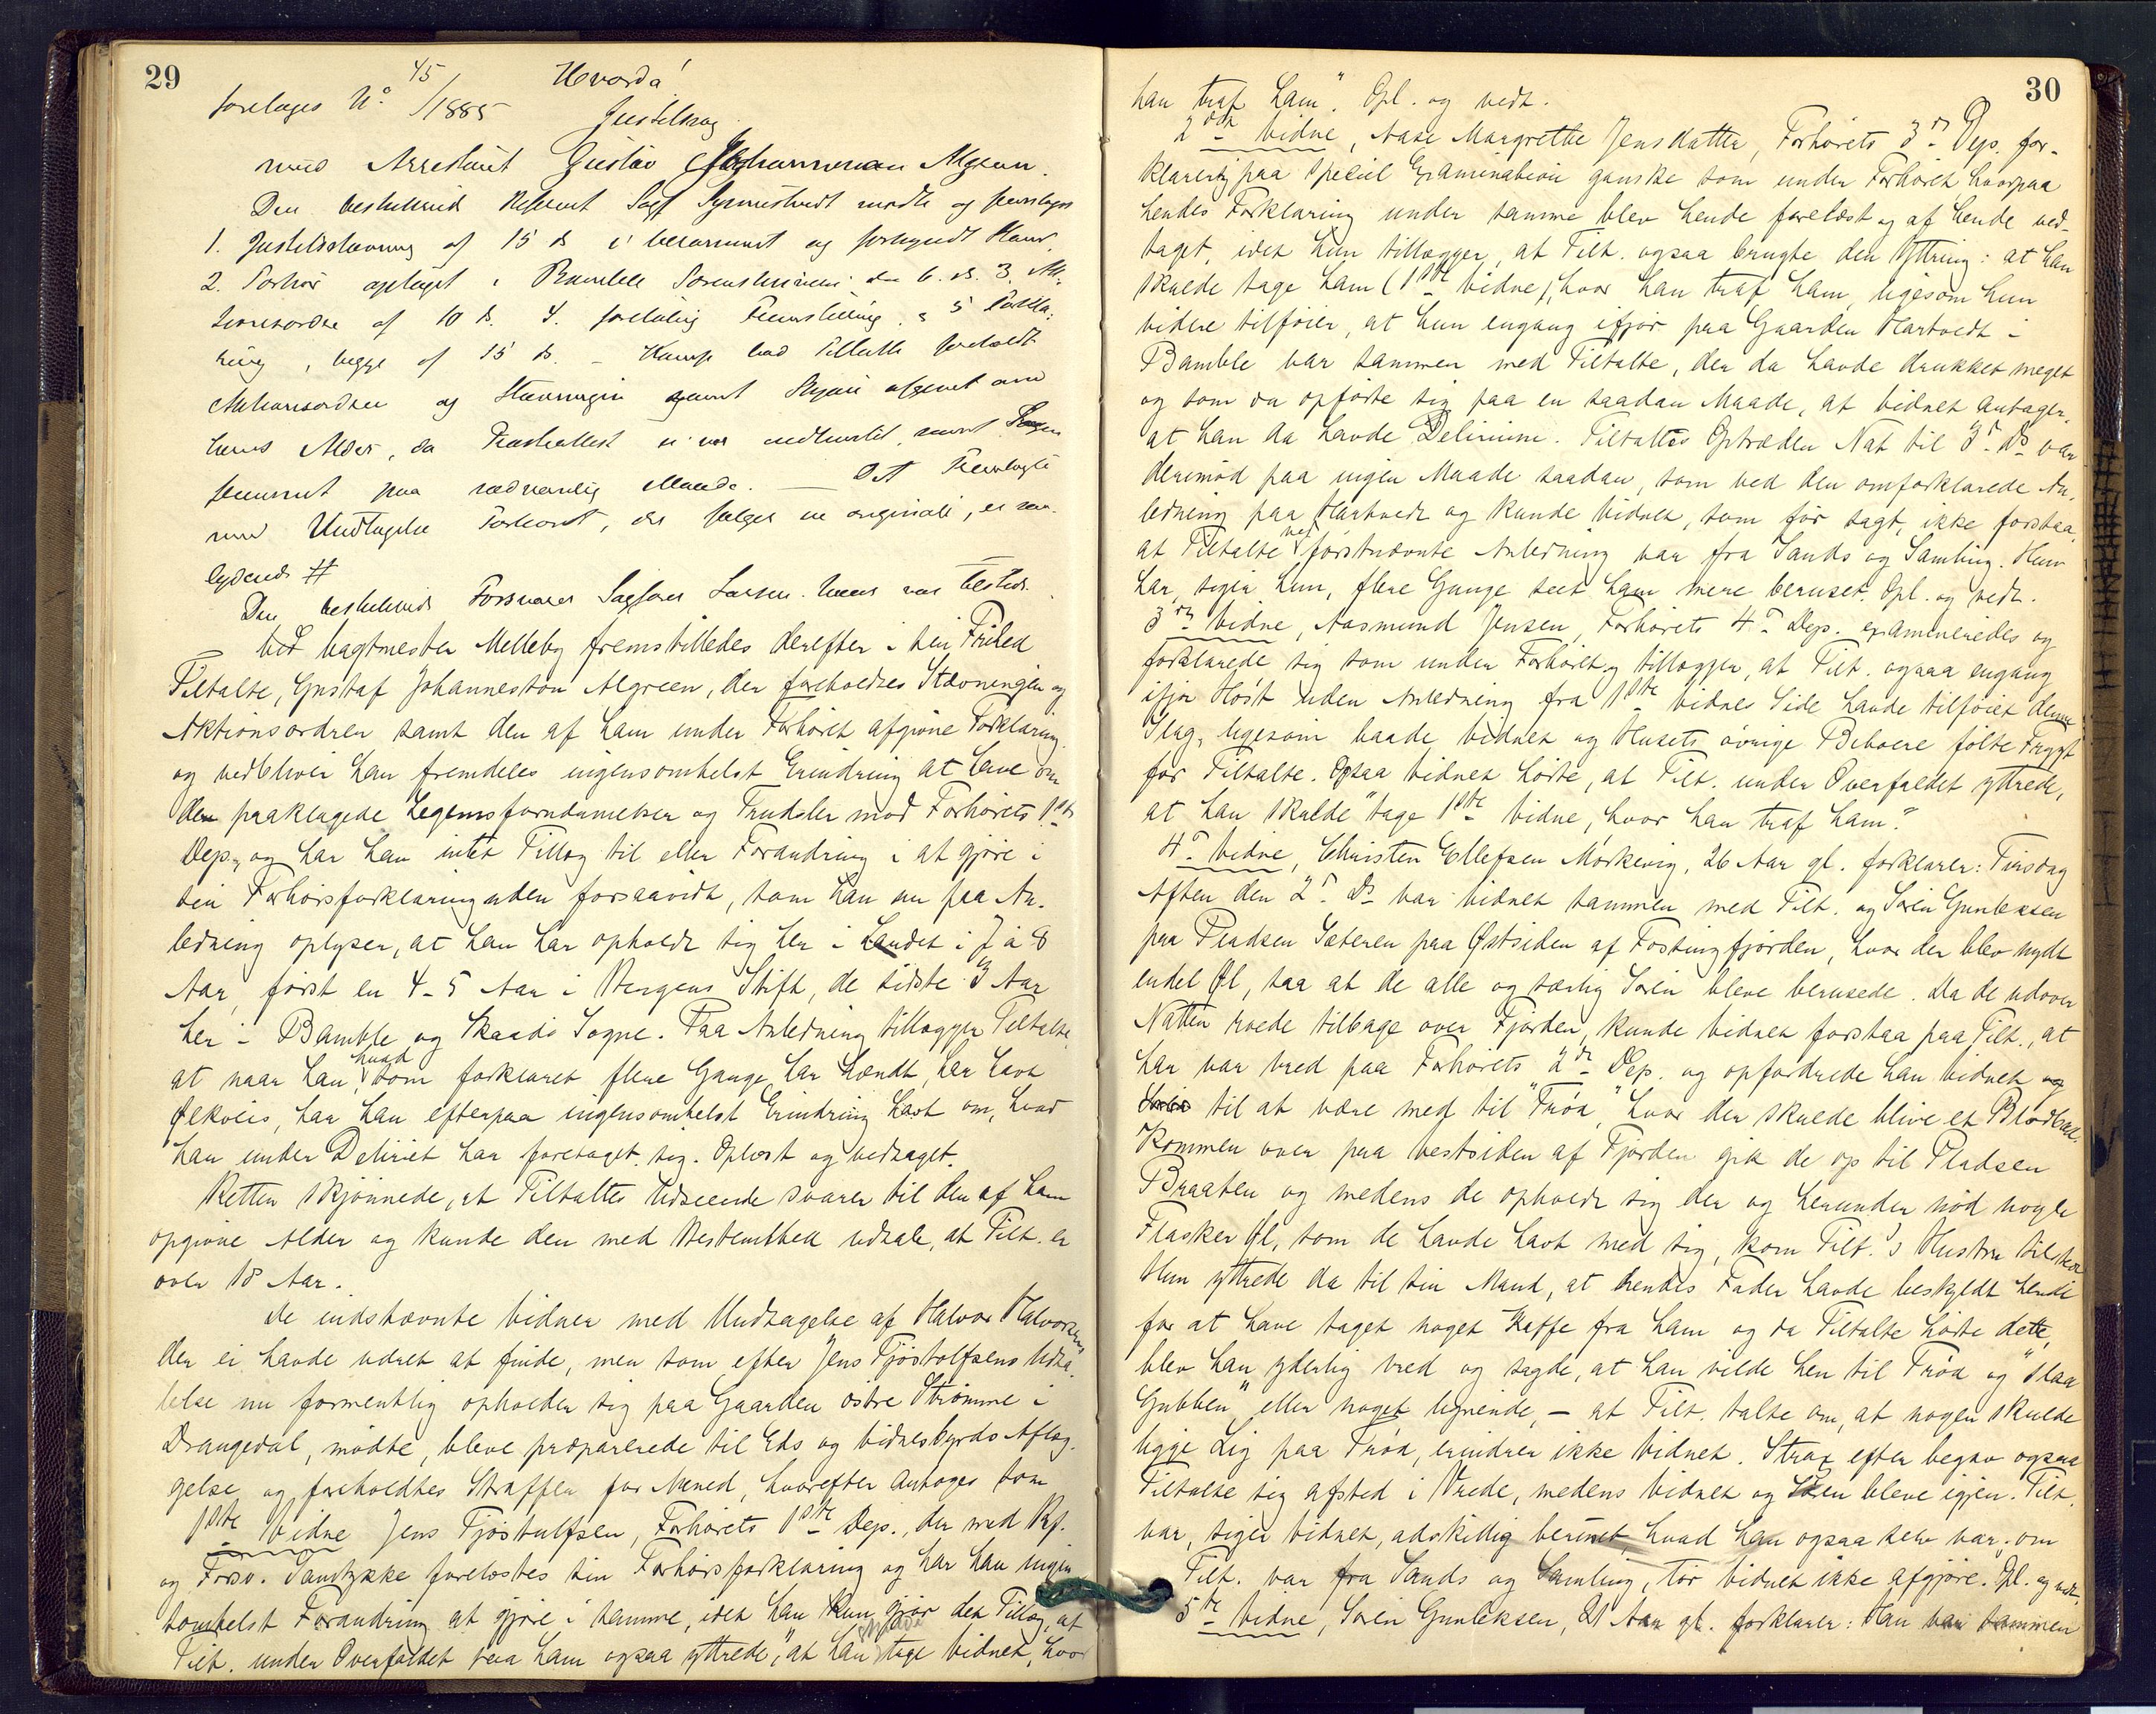 29
Hvorda!
foretoges No 45/1885
Justitssag
mod Arrestant Gustav Johannesson Algreen.
Den beskikkede Referent Sagf. mødte og fremlagde
1. Justitsstævning af 15 ds i berammet og forkyndt Stand
2. Forhør optaget i Bamble Sorenskriveri den 6. ds. 3. Ak-
tionsordre af 10 ds. 4. foreløbig Fremstilling, 5 Forkla-
ring, begge af 15 ds. – lod Tiltalte foreholdt
Aktionsordren og Stævningen samt afgivet om
hans Alder, da ei var indkommet, samt Sagen
fremmet paa sædvanlig Maade. — Det Fremlagte
med Undtagelse Forhøret, der følger in originali, er saa-
lydende #
Den beskikkede Forsvarer Sagfører Larsen var tilstede.
Ved Vagtmester Melleby fremstilledes derefter i sin Frihed
Tiltalte, Gustaf Johannesson Algreen, der foreholdtes Stævningen og
Aktionsordren samt den af ham under Forhøret afgivne Forklaring
og vedbliver han fremdeles ingensomhelst Erindring at have om
den paaklagede Legemsfornærmelser og Trudsler mod Forhørets 1ste
Dep., og har han intet Tillæg til eller Forandring i at gjøre i
sin Forhørsforklaring uden forsaavidt, som han nu paa An-
ledning oplyser, at han har opholdt sig her i Landet i 7 à 8
Aar, først en 4-5 Aar i Bergens Stift, de sidste 3 Aar
her i Bamble og Skaadø Sogne. Paa Anledning tillægger Tiltalte,
at naar han, hvad som forklaret flere Gange har hændt, har havt
Ølkolis, har han efterpaa ingensomhelst Erindring havt om, hvad
han under Deliriet har foretaget sig. Oplæst og vedtaget.
Retten skjønnede, at Tiltaltes Udseende svarer til den af ham
opgivne Alder og kunde den med Bestemthed udtale, at Tilt. er
over 18 Aar.
De indstævnte Vidner med Undtagelse af Halvor Halvorsen
der ei havde været at finde, men som efter Jens Tjøstolfsens Udta-
telse nu formentlig opholder sig paa Gaarden østre Strømme i
Drangedal, mødte, bleve præparerede til Eds og Vidnesbyrds Aflæg-
gelse og foreholdtes Straffen for Mened, hvorefter antoges som
1ste Vidne Jens Tjøstulfsen, Forhørets 1ste Dep., der med Ref.
og Forsv. Samtykke forelæstes sin Forhørsforklaring og har han ingen
somhelst Forandring at gjøre i samme, idet han kun gjør det Tillæg, at
Tilt. under Overfaldet paa ham ogsaa yttrede, "at han skulde tage Vidnet, hvor
30
han traf ham". Opl. og vedt.
2det Vidne, Aase Margrethe Jensdatter, Forhørets 3die Dep. for-
klarer sig paa speciel Examination ganske som under Forhøret hvorpaa
hendes Forklaring under samme blev hende forelæst og af hende ved-
taget, idet hun tillægger, at Tilt. ogsaa brugte den Yttring: at han
skulde tage ham (1ste Vidne), hvor han traf ham, ligesom hun
videre tilføier, at hun engang ifjor paa Gaarden Hartvedt i
Bamble var sammen med Tiltalte, der da havde drukket meget
og som da opførte sig paa en saadan Maade, at Vidnet antager,
at han da havde Delirium. Tiltaltes Optræden Nat til 3die ds var
derimod paa ingen Maade saadan, som ved den omforklarede An-
ledning paa Hartvedt og kunde Vidnet, som før sagt, ikke forstaa,
at Tiltalte ved førstnævnte Anledning var fra Sands og Samling. Hun
har, siger hun, flere Gange seet ham mere beruset. Opl. og vedt.
3die Vidne, Aasmund Jensen, Forhørets 4de Dep. examineredes og
forklarede sig som under Forhøret og tillægger, at Tilt. ogsaa engang
ifjor Høst uden Anledning fra 1ste Vidnes Side havde tilføiet denne
Slag, ligesom baade Vidnet og Husets øvrige Beboere følte Frygt
for Tiltalte. Ogsaa Vidnet hørte, at Tilt. under Overfaldet yttrede,
at han skulde "tage 1ste Vidne, hvor han traf ham".
4de Vidne, Christen Ellefsen Mørkevig, 26 Aar gl. forklarer: Tirsdag
Aften den 2den ds var Vidnet sammen med Tilt. og Søren Gunleksen
paa Pladsen Sæteren paa Østsiden af Fossingfjorden, hvor der blev nydt
endel Øl, saa at de alle og særlig Søren bleve berusede. Da de udover
Natten roede tilbage over Fjorden, kunde Vidnet forstaa paa Tilt., at
han var vred paa Forhørets 2det Dep. og opfordrede han Vidnet og
Søren til at være med til "Trøa", hvor der skulde blive et Blodbad.
Kommen over paa Vestsiden af Fjorden gik de op til Pladsen
Braaten og medens de opholdt sig der og herunder nød nogle
Flasker Øl, som de havde havt med sig, kom Tilt.'s Hustru tilstede
Hun yttrede da til sin Mand, at hendes Fader havde beskyldt hende
for at have taget noget Kaffe fra ham og da Tiltalte hørte dette,
blev han yderlig vred og sagde, at han vilde hen til Trøa og "slaa
Gubben" eller noget lignende, – at Tilt. talte om, at nogen skulde
ligge Lig paa Trøa, erindrer ikke Vidnet. Strax efter begav ogsaa
Tiltalte sig afsted i Vrede, medens Vidnet og Søren bleve igjen. Tilt.
var, siger Vidnet, adskillig beruset, hvad han ogsaa selv var; om
Tilt. var fra Sands og Samling, tør Vidnet ikke afgjøre. Opl. og vedt.
5te Vidne, Søren Gunleksen, 21 Aar gl. forklarer: Han var sammen